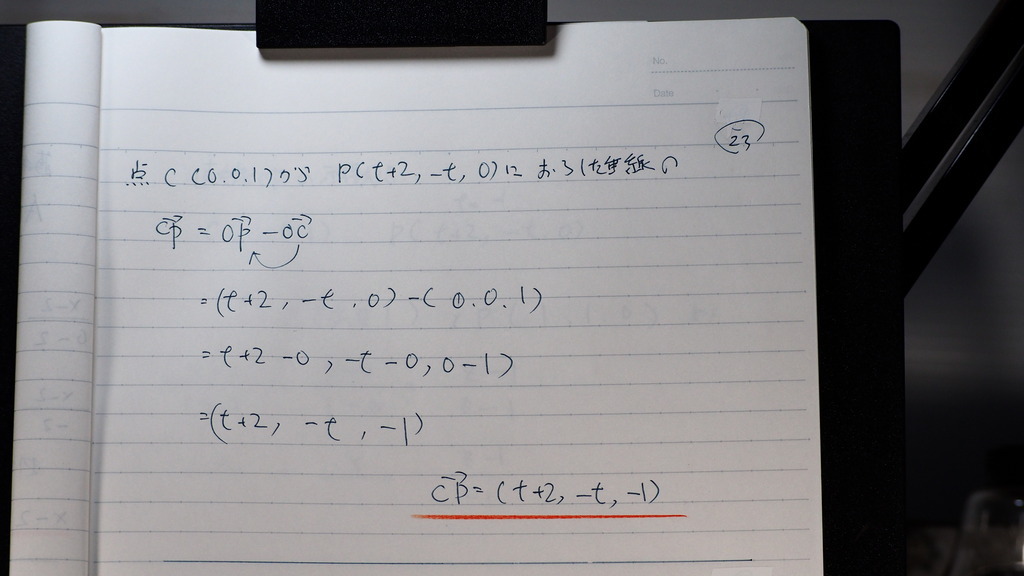 No.
Date
23
点C(0.0.1)から P(t+2, -t, 0)に おろした垂線の
CP→ = OP→ - OC→
= (t+2, -t, 0) - (0.0.1)
= t+2-0, -t-0, 0-1)
= (t+2, -t, -1)
CP→ = (t+2, -t, -1)